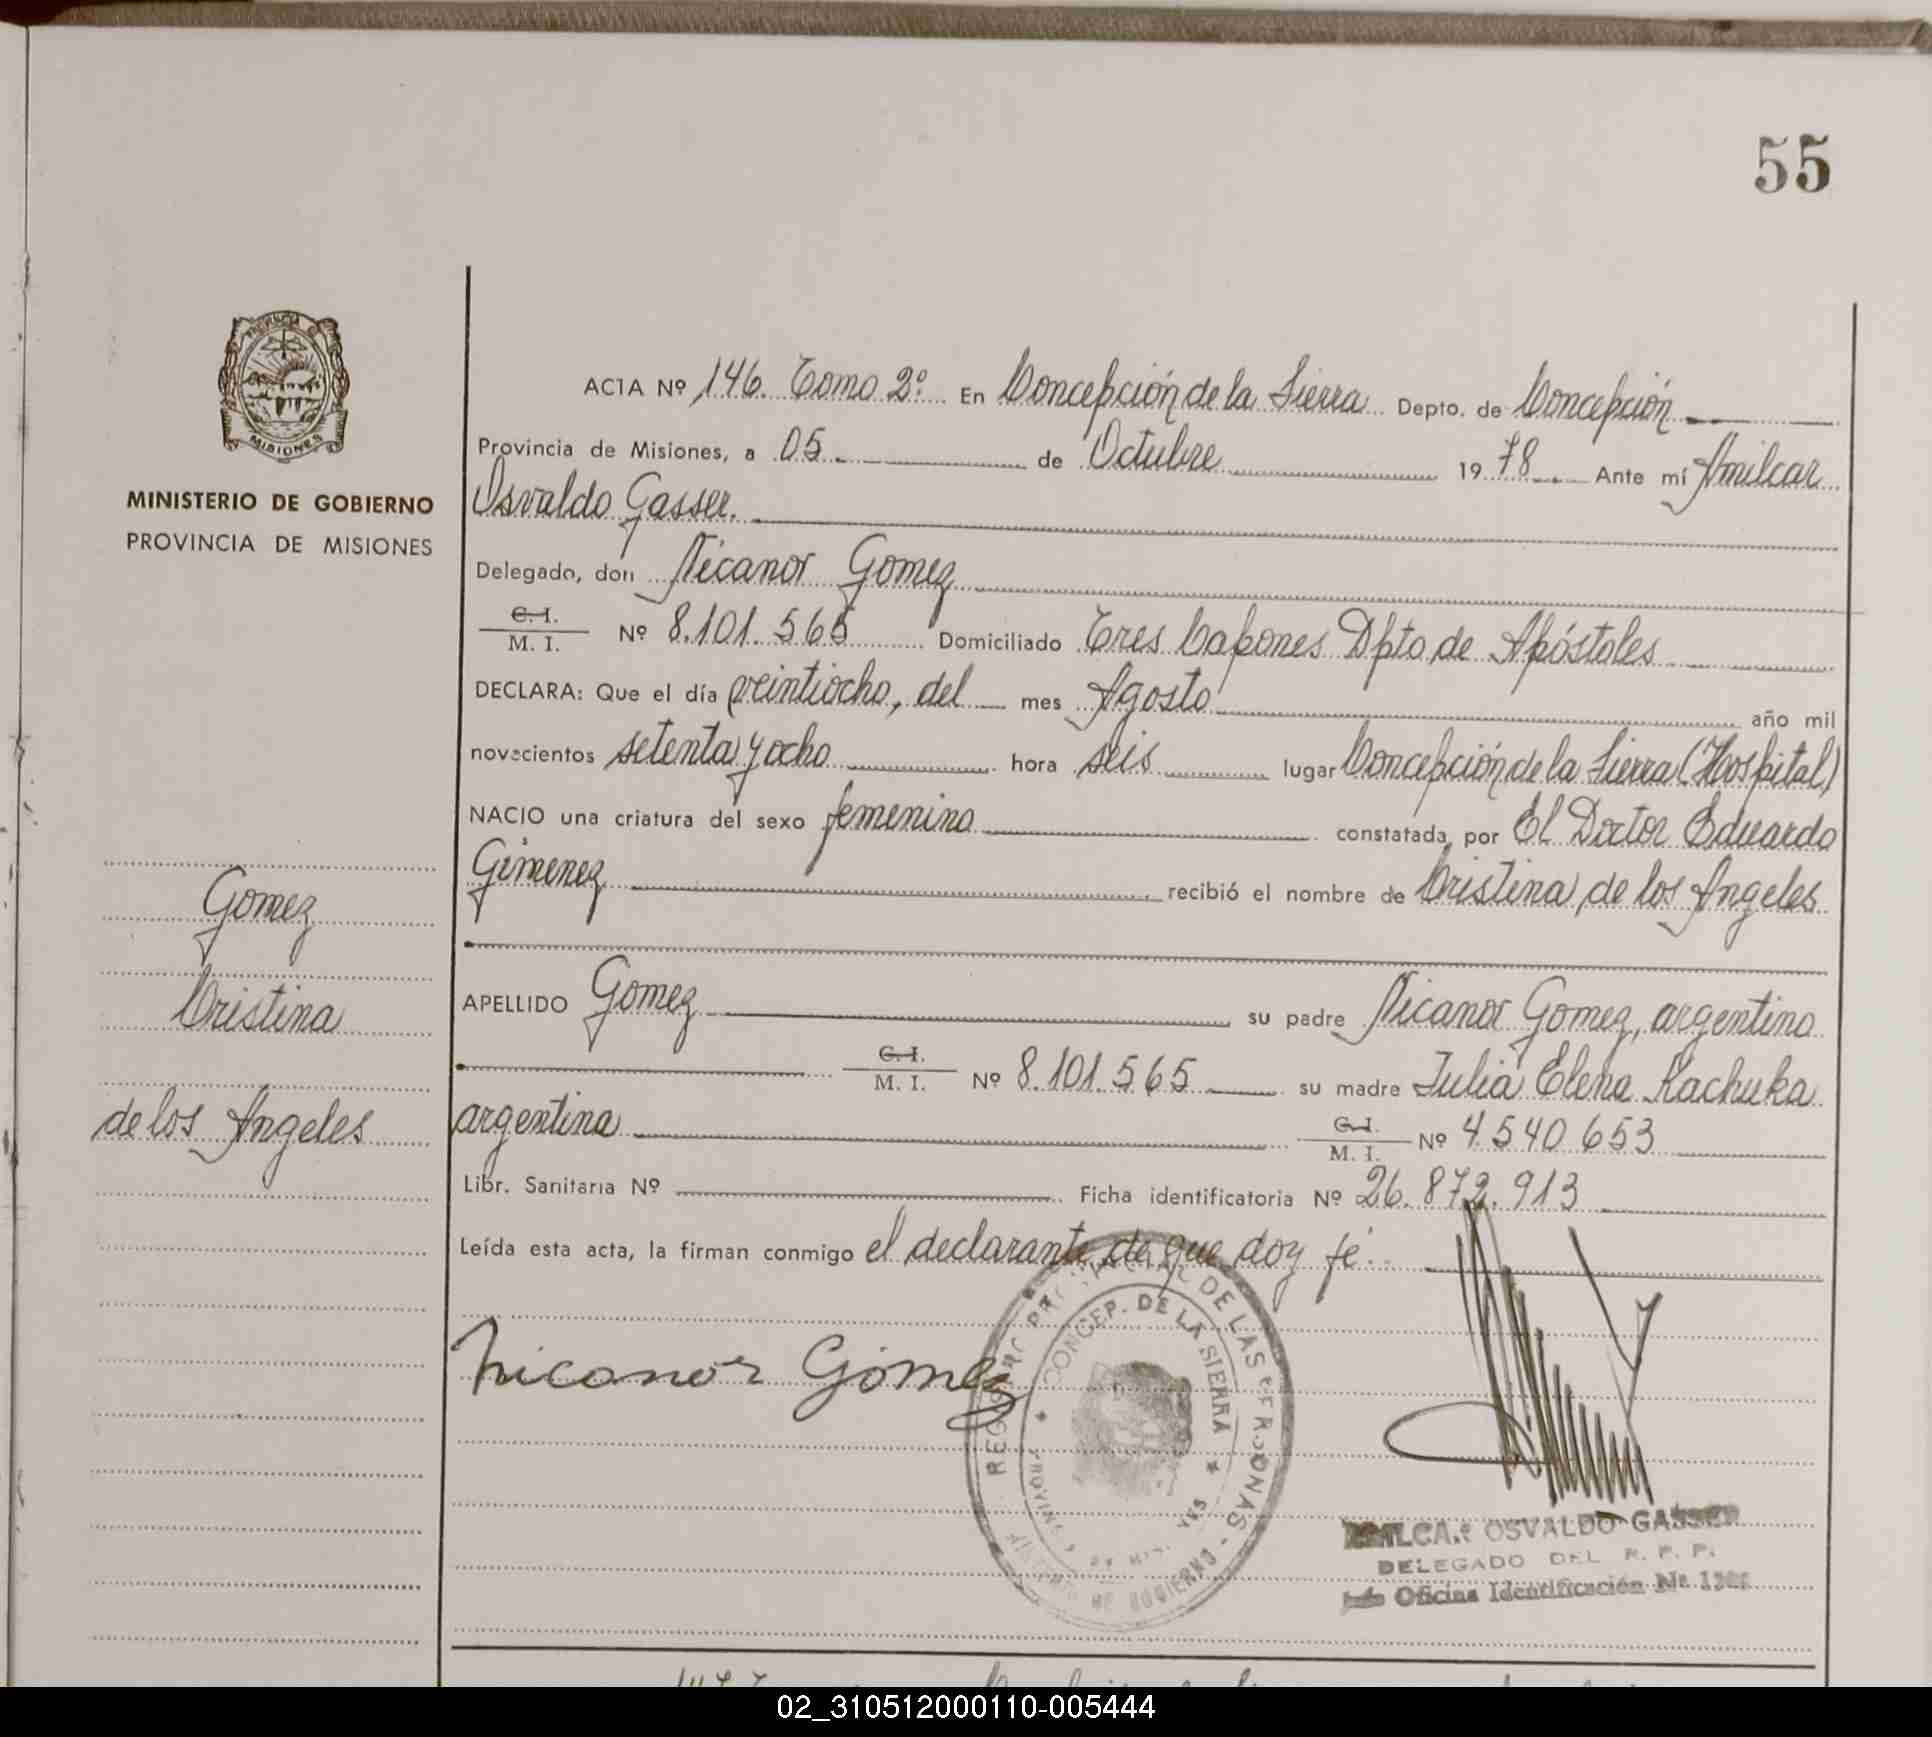 55
MINISTERIO DE GOBIERNO
PROVINCIA DE MISIONES
ACTA Nº 146. Tomo 2º. En Concepción de la Sierra Depto. de Concepción
Provincia de Misiones, a 05 de Octubre 1978 Ante mí Amilcar
Osvaldo Gasser.
Delegado, don Nicanor Gomez
C. I.
M. I. Nº 8.101.565 Domiciliado Tres Capones Dpto de Apóstoles
DECLARA: Que el día veintiocho, del mes Agosto año mil
novecientos setenta y ocho hora seis lugar Concepción de la Sierra (Hospital)
NACIO una criatura del sexo femenino constatada por El Doctor Eduardo
Gimenez recibió el nombre de Cristina de los Angeles
APELLIDO Gomez su padre Nicanor Gomez, argentino
C. I.
M. I. Nº 8.101.565 su madre Julia Elena Kachuka
argentina C. I.
M. I. Nº 4.540.653
Libr. Sanitaria Nº Ficha identificatoria Nº 26.872.913
Leída esta acta, la firman conmigo el declarante de que doy fé.
Gomez
Cristina
de los Angeles
Nicanor Gómez
CONCEP. DE LA SIERRA
OSVALDO GASSER
DELEGADO DEL R. P. P.
Oficina Identificación Nº
02_310512000110-005444